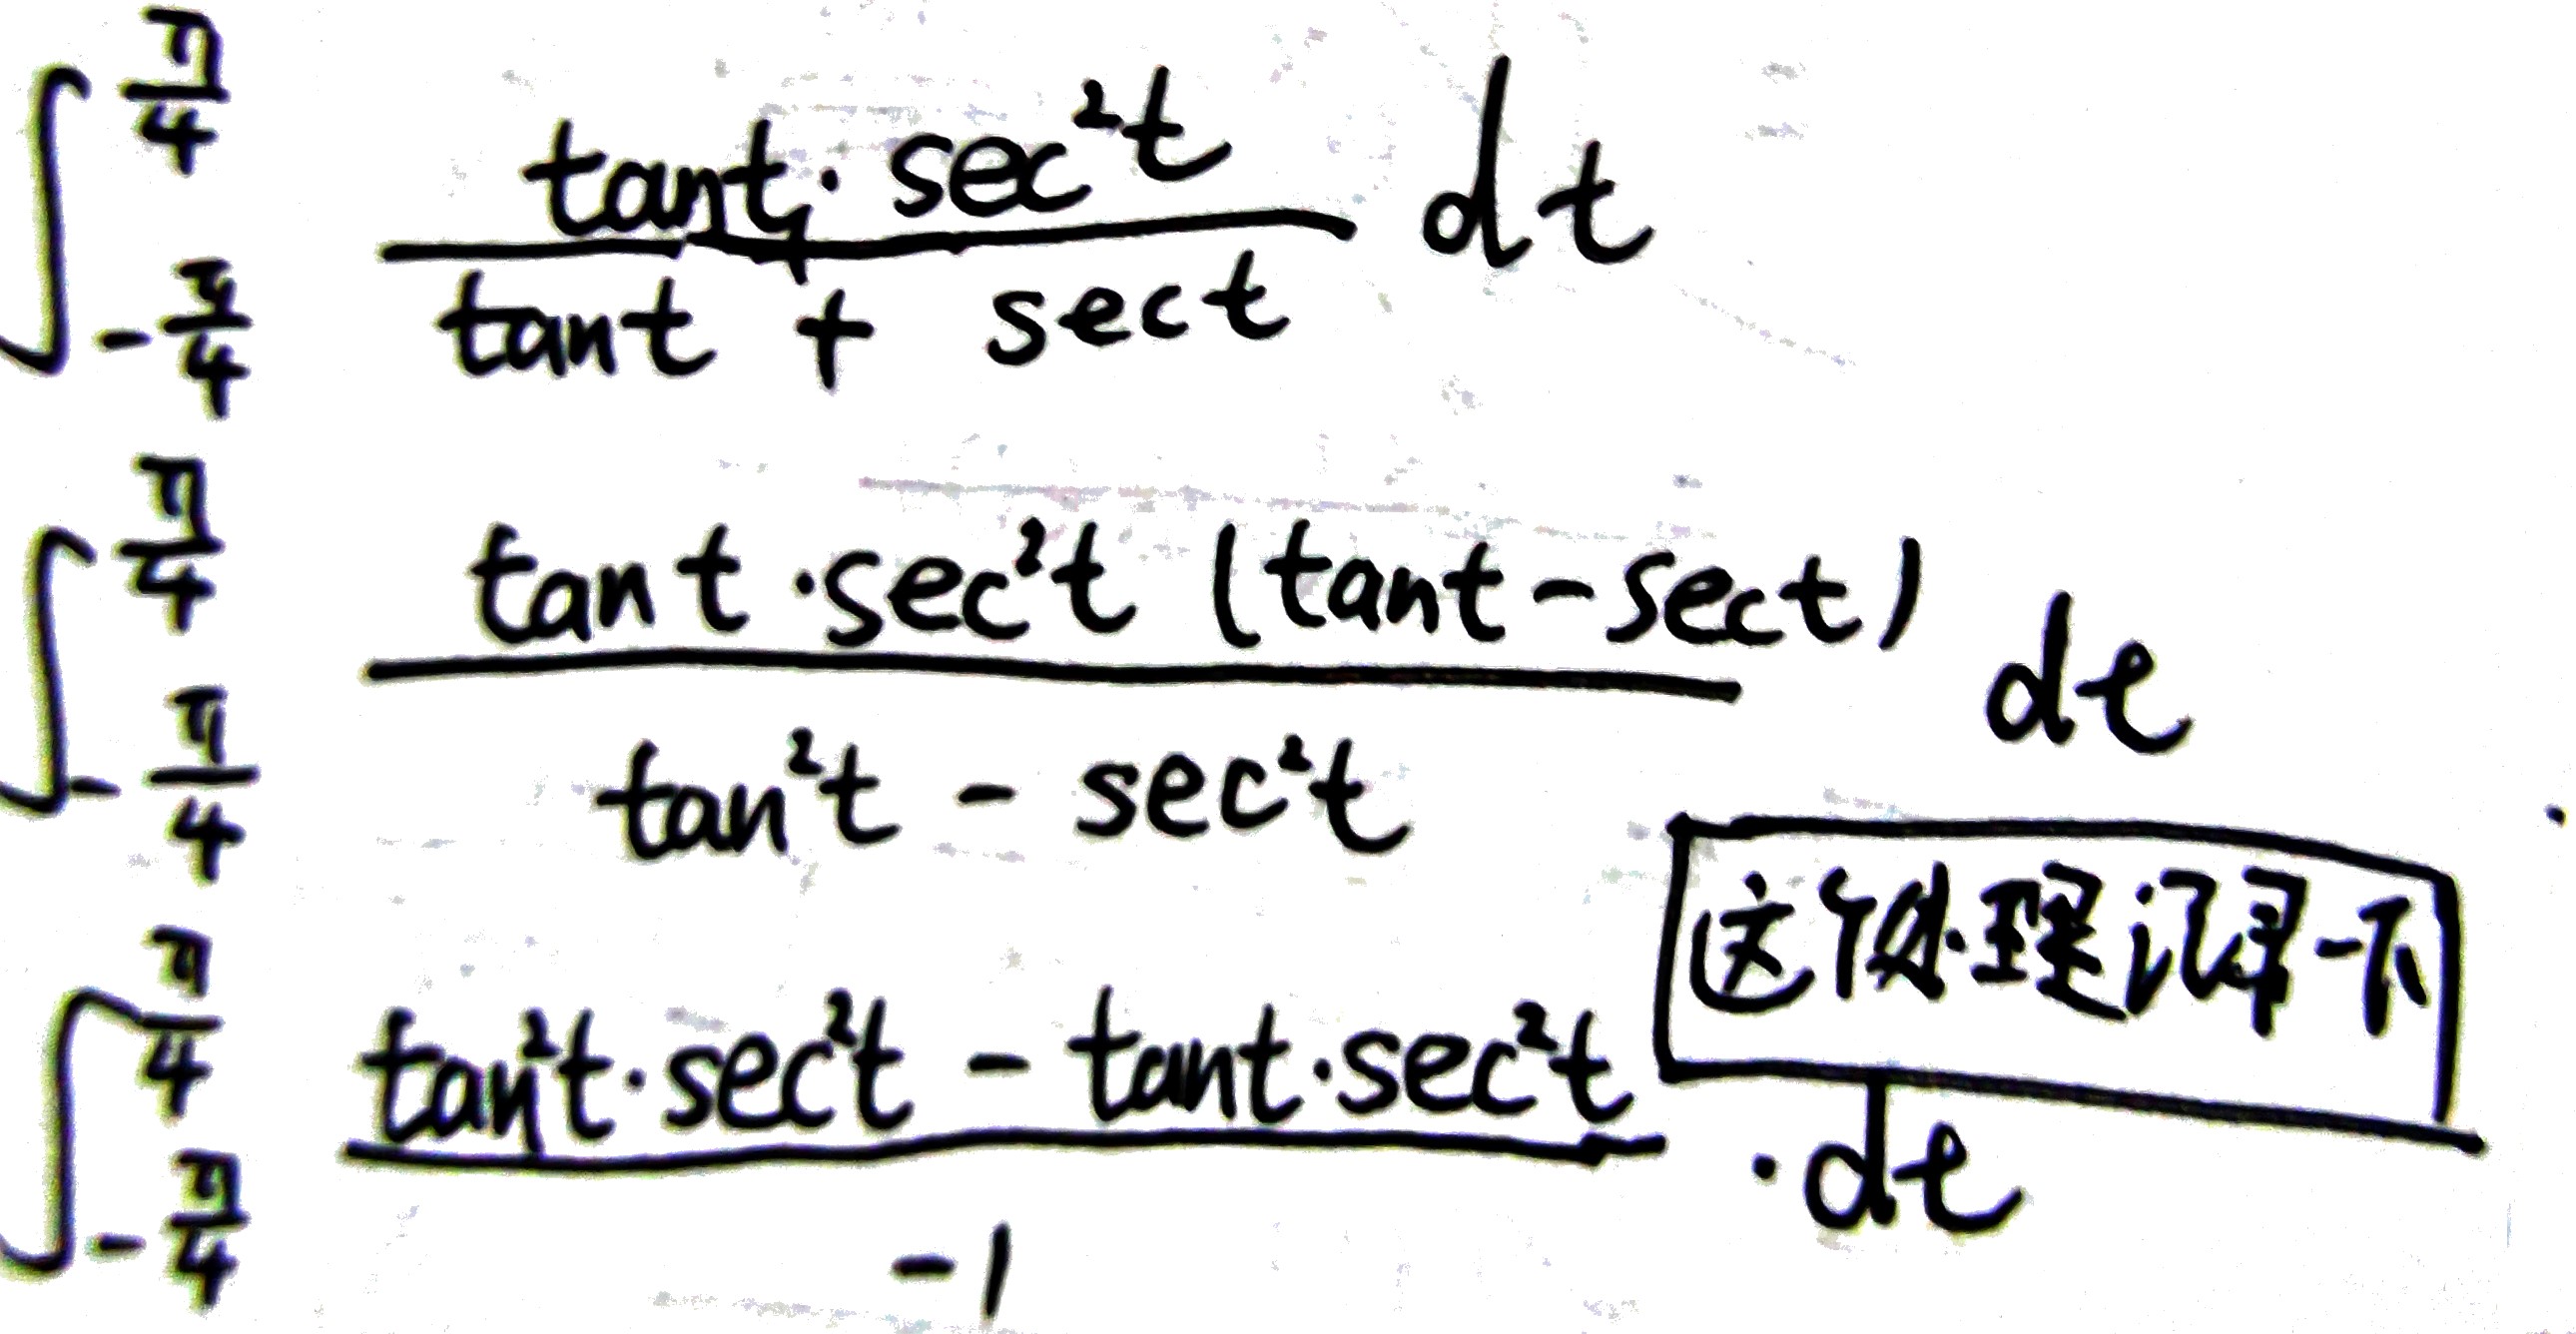 ∫_{-π/4}^{π/4} (tant · sec²t)/(tant + sect) dt
∫_{-π/4}^{π/4} (tant · sec²t (tant - sect))/(tan²t - sec²t) dt
这个处理记录一下
∫_{-π/4}^{π/4} (tan²t · sec²t - tant · sec²t)/(-1) · dt